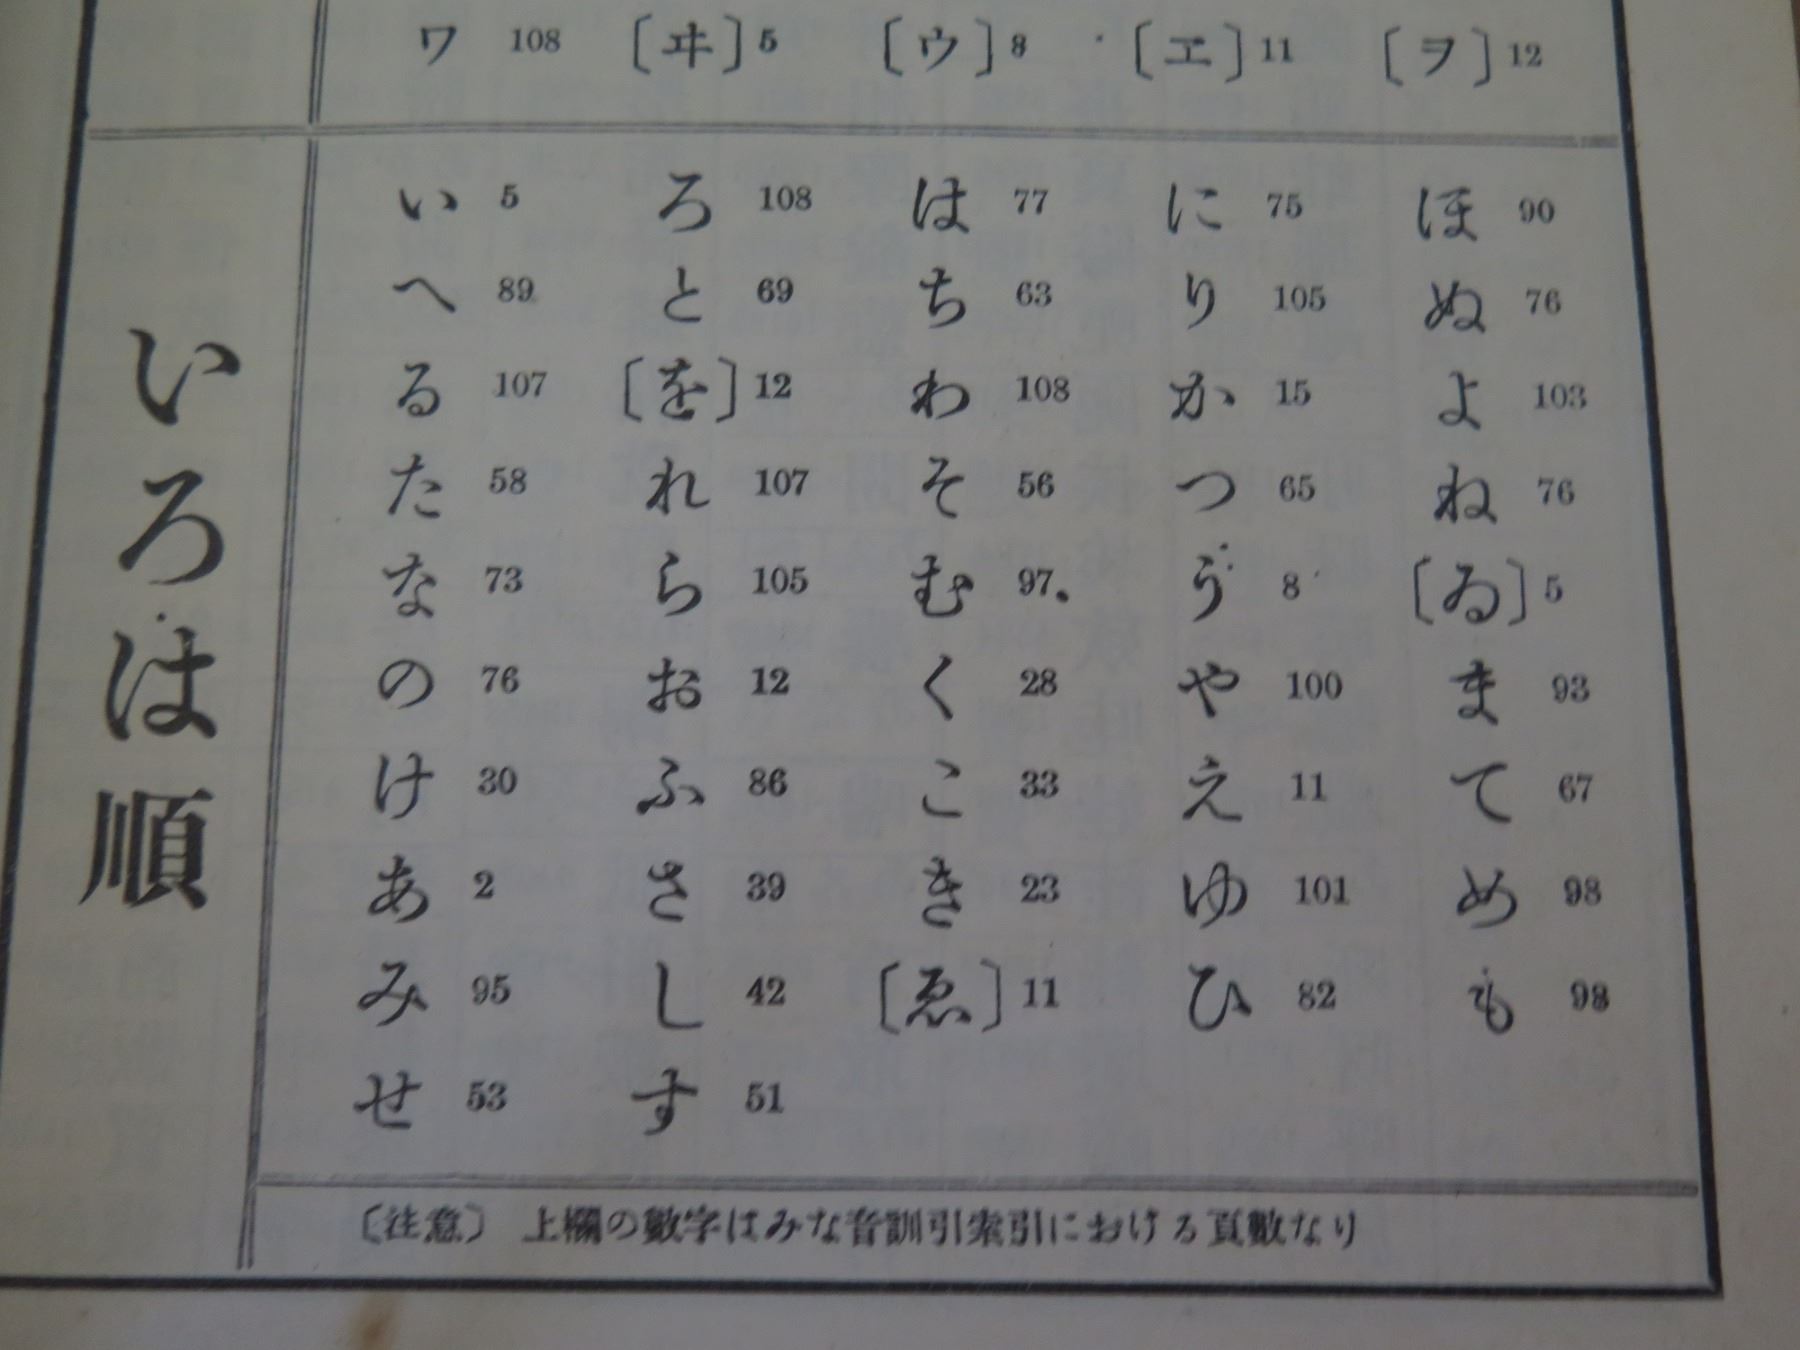 ワ 108 〔ヰ〕5 〔ウ〕8 〔エ〕11 〔ヲ〕12
いろは順
い 5 ろ 108 は 77 に 75 ほ 90
へ 89 と 69 ち 63 り 105 ぬ 76
る 107 〔を〕12 わ 108 か 15 よ 103
た 58 れ 107 そ 56 つ 65 ね 76
な 73 ら 105 む 97 う 8 〔ゐ〕5
の 76 お 12 く 28 や 100 ま 93
け 30 ふ 86 こ 33 え 11 て 67
あ 2 さ 39 き 23 ゆ 101 め 98
み 95 し 42 〔ゑ〕11 ひ 82 も 98
せ 53 す 51
〔注意〕 上欄の數字はみな音訓引索引における頁數なり